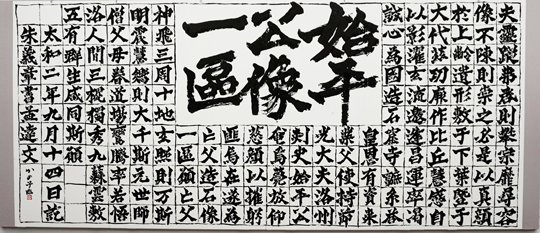 始平
公像
一區
夫靈蹤弗啓則攀宗靡尋容
像不陳則崇之必是以真顏
於上齡遺形敷于下葉暨于
大代茲功厥作比丘慧成自
以影濯玄流邀逢昌運率渴
誠心為國造石窟寺誠系答
皇恩有資來
業父使持節
光大夫洛州
刺史始平公
奄焉薨放仰
慈顏以摧躬
匪烏在遂為
亡父造石像
一區願亡父
神飛三周十地玄照則万斯
明震慧響則大千斯元世師
僧父母眷道場鸞騰率若悟
洛人間三槐獨秀九棘雲敷
五有群生咸同斯願
太和二年九月十四日訖
朱義章書孟達文